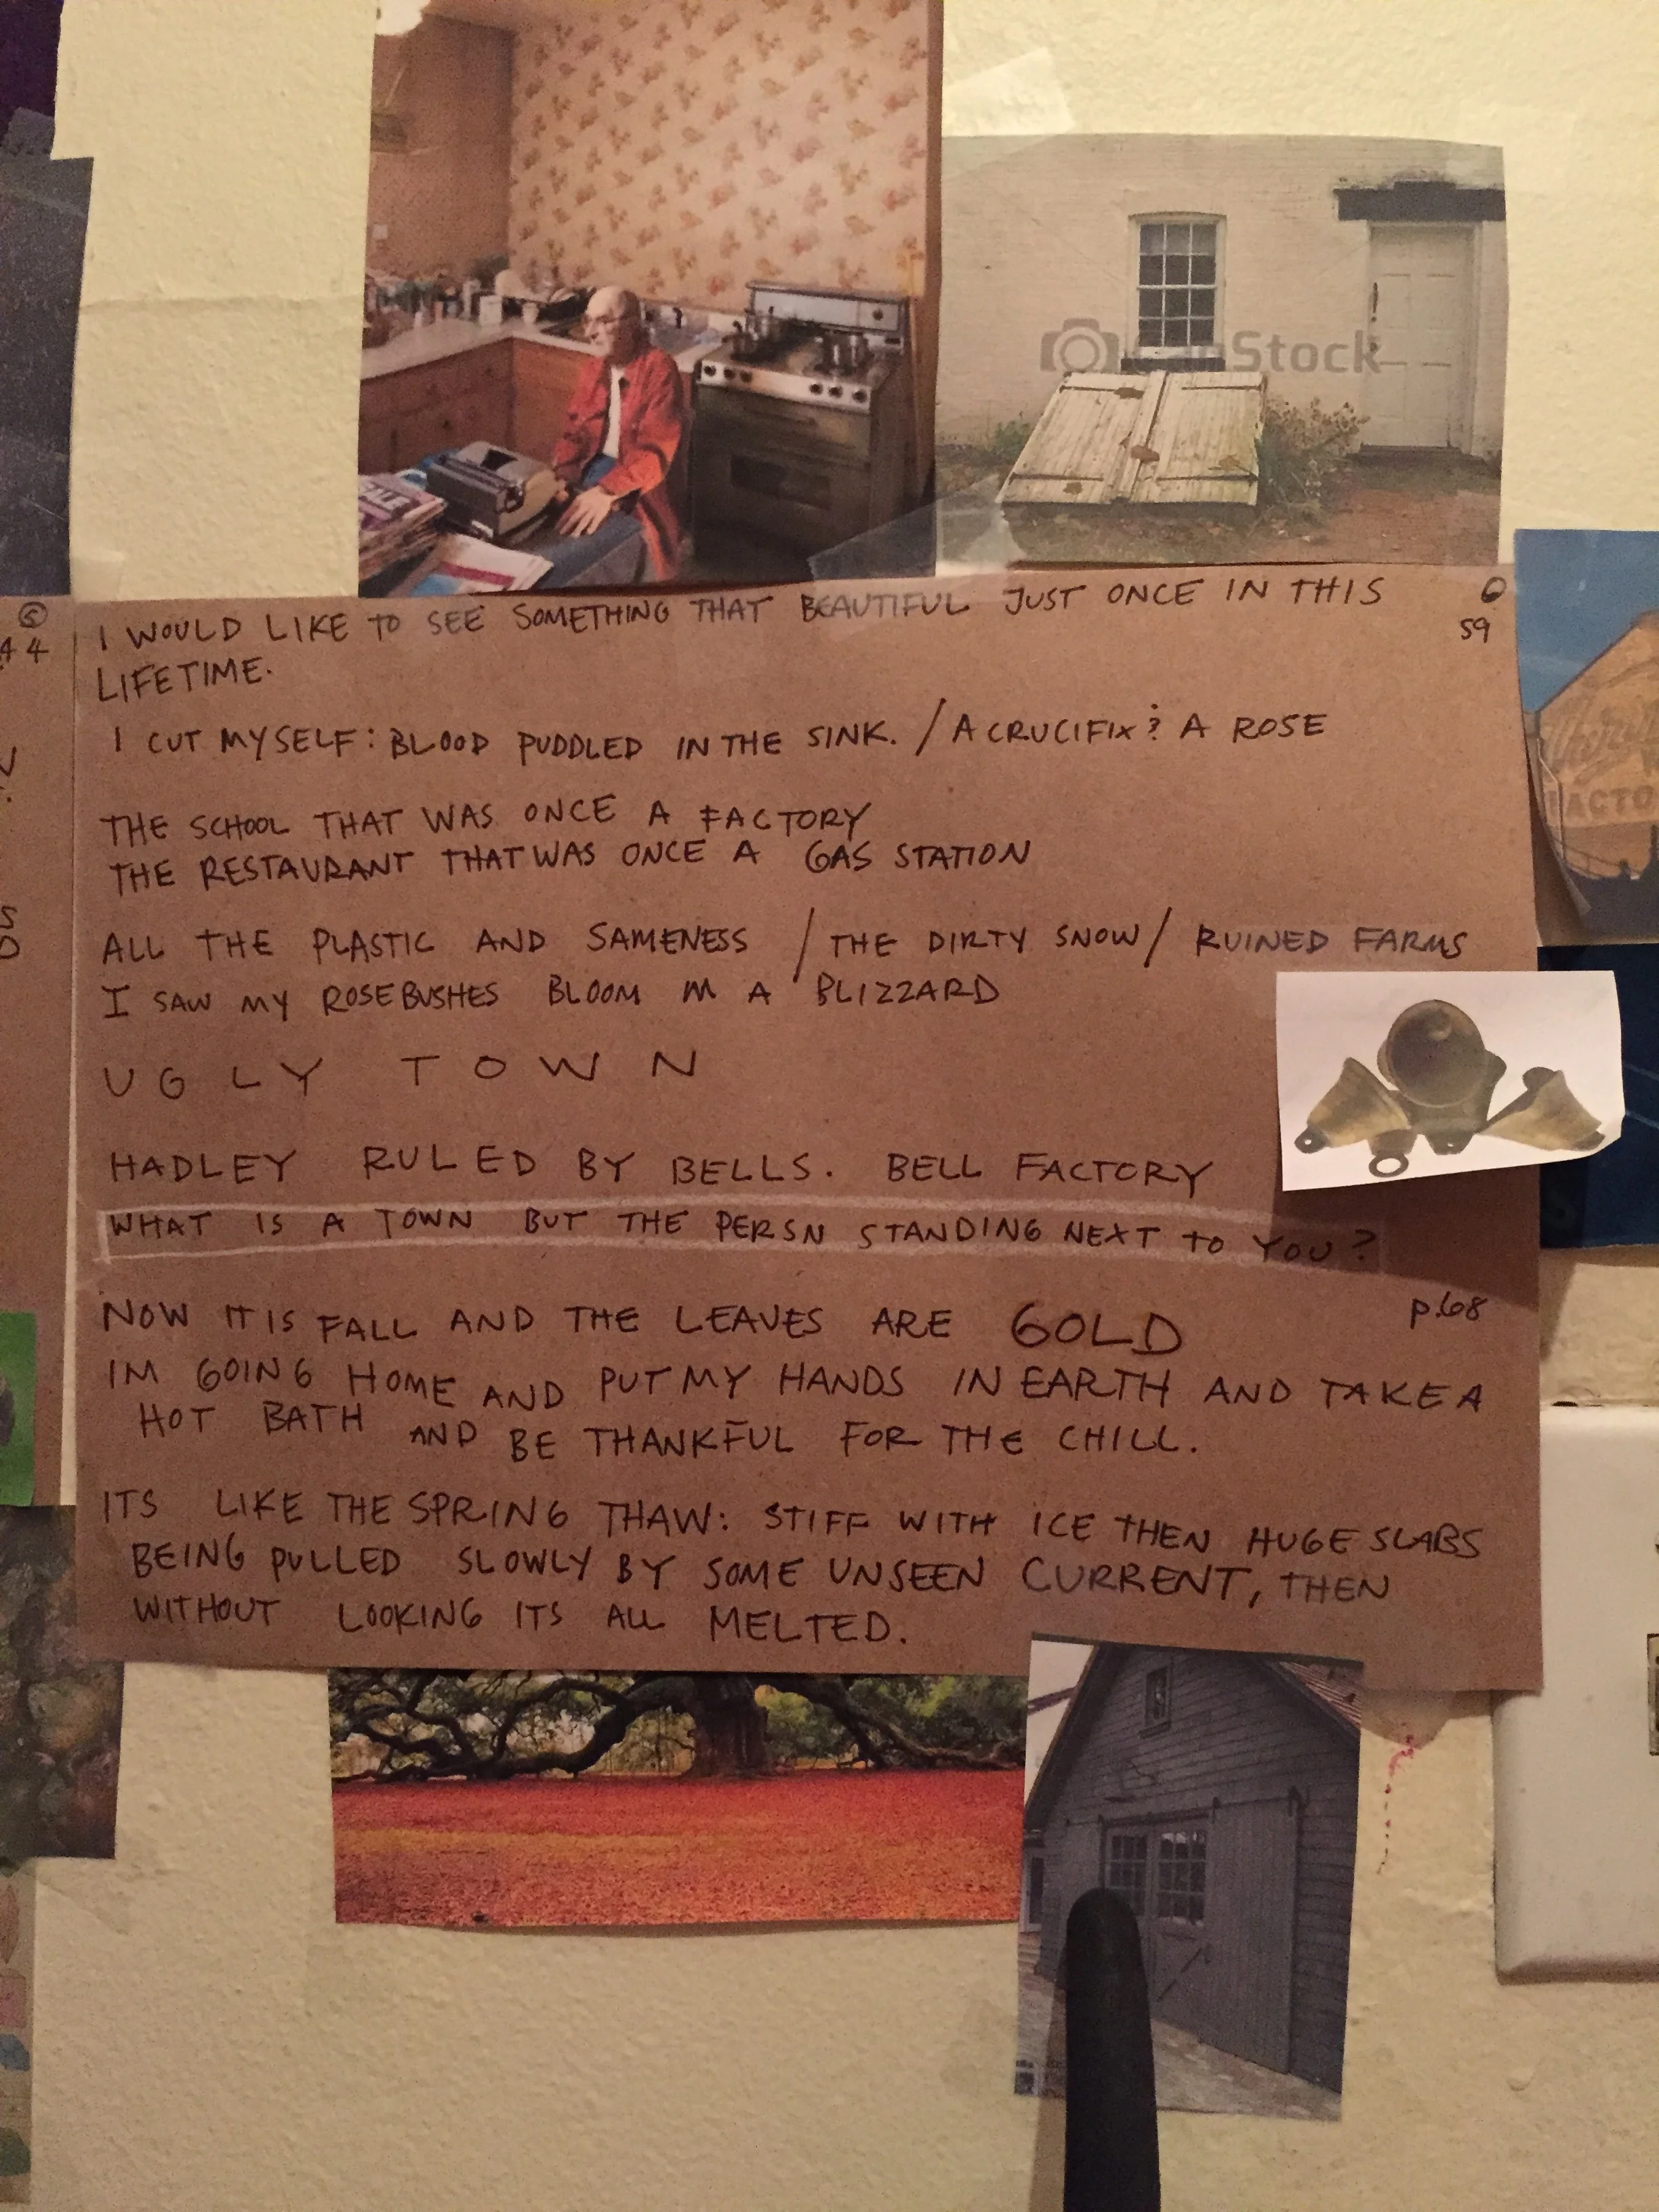 I WOULD LIKE TO SEE SOMETHING THAT BEAUTIFUL JUST ONCE IN THIS
59
LIFETIME.
I CUT MYSELF: BLOOD PUDDLED IN THE SINK. / A CRUCIFIX? A ROSE
THE SCHOOL THAT WAS ONCE A FACTORY
THE RESTAURANT THAT WAS ONCE A GAS STATION
ALL THE PLASTIC AND SAMENESS / THE DIRTY SNOW / RUINED FARMS
I SAW MY ROSEBUSHES BLOOM IN A BLIZZARD
UGLY TOWN
HADLEY RULED BY BELLS. BELL FACTORY
WHAT IS A TOWN BUT THE PERSN STANDING NEXT TO YOU?
NOW IT IS FALL AND THE LEAVES ARE GOLD
p.68
IM GOING HOME AND PUT MY HANDS IN EARTH AND TAKE A
HOT BATH AND BE THANKFUL FOR THE CHILL.
ITS LIKE THE SPRING THAW: STIFF WITH ICE THEN HUGE SLABS
BEING PULLED SLOWLY BY SOME UNSEEN CURRENT, THEN
WITHOUT LOOKING ITS ALL MELTED.
CanStock